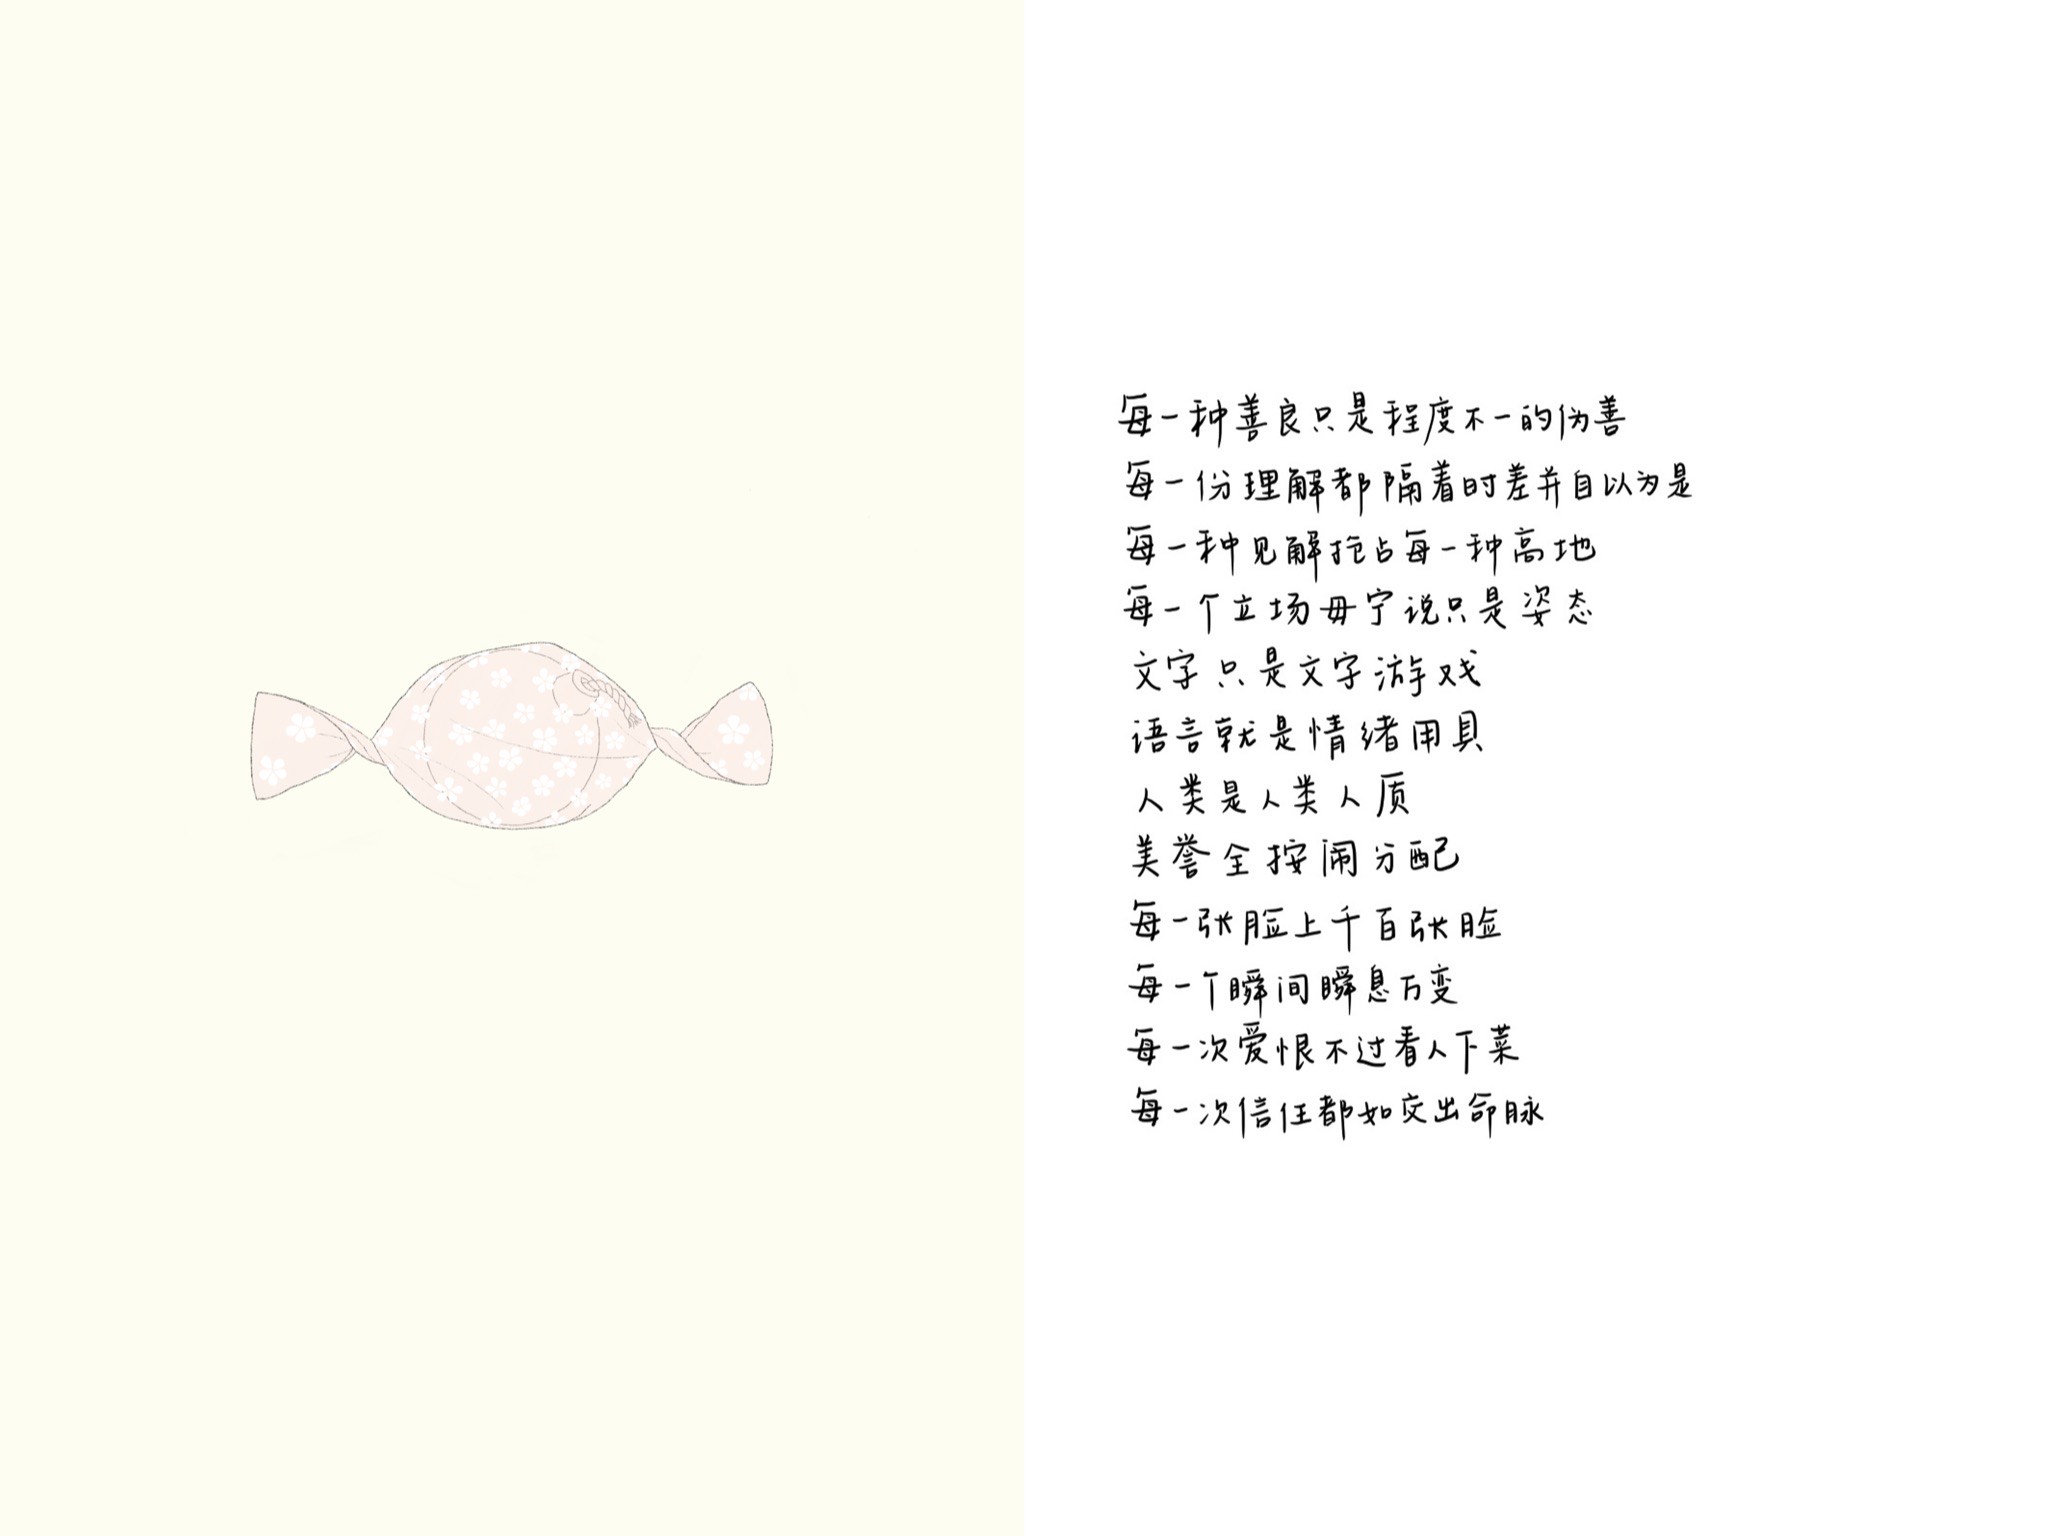 每一种善良只是程度不一的伪善
每一份理解都隔着时差并自以为是
每一种见解抢占每一种高地
每一个立场毋宁说只是姿态
文字只是文字游戏
语言就是情绪用具
人类是人类人质
美誉全按闹分配
每一张脸上千百张脸
每一个瞬间瞬息万变
每一次爱恨不过看人下菜
每一次信任都如交出命脉